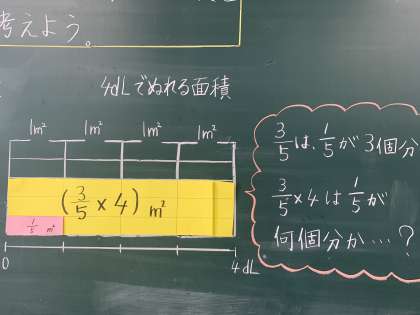 考えよう。
4dLでぬれる面積
1m² 1m² 1m² 1m²
(3/5 × 4) m²
1/5 m²
0 4dL
3/5は、1/5が3個分
3/5×4は1/5が
何個分か…?